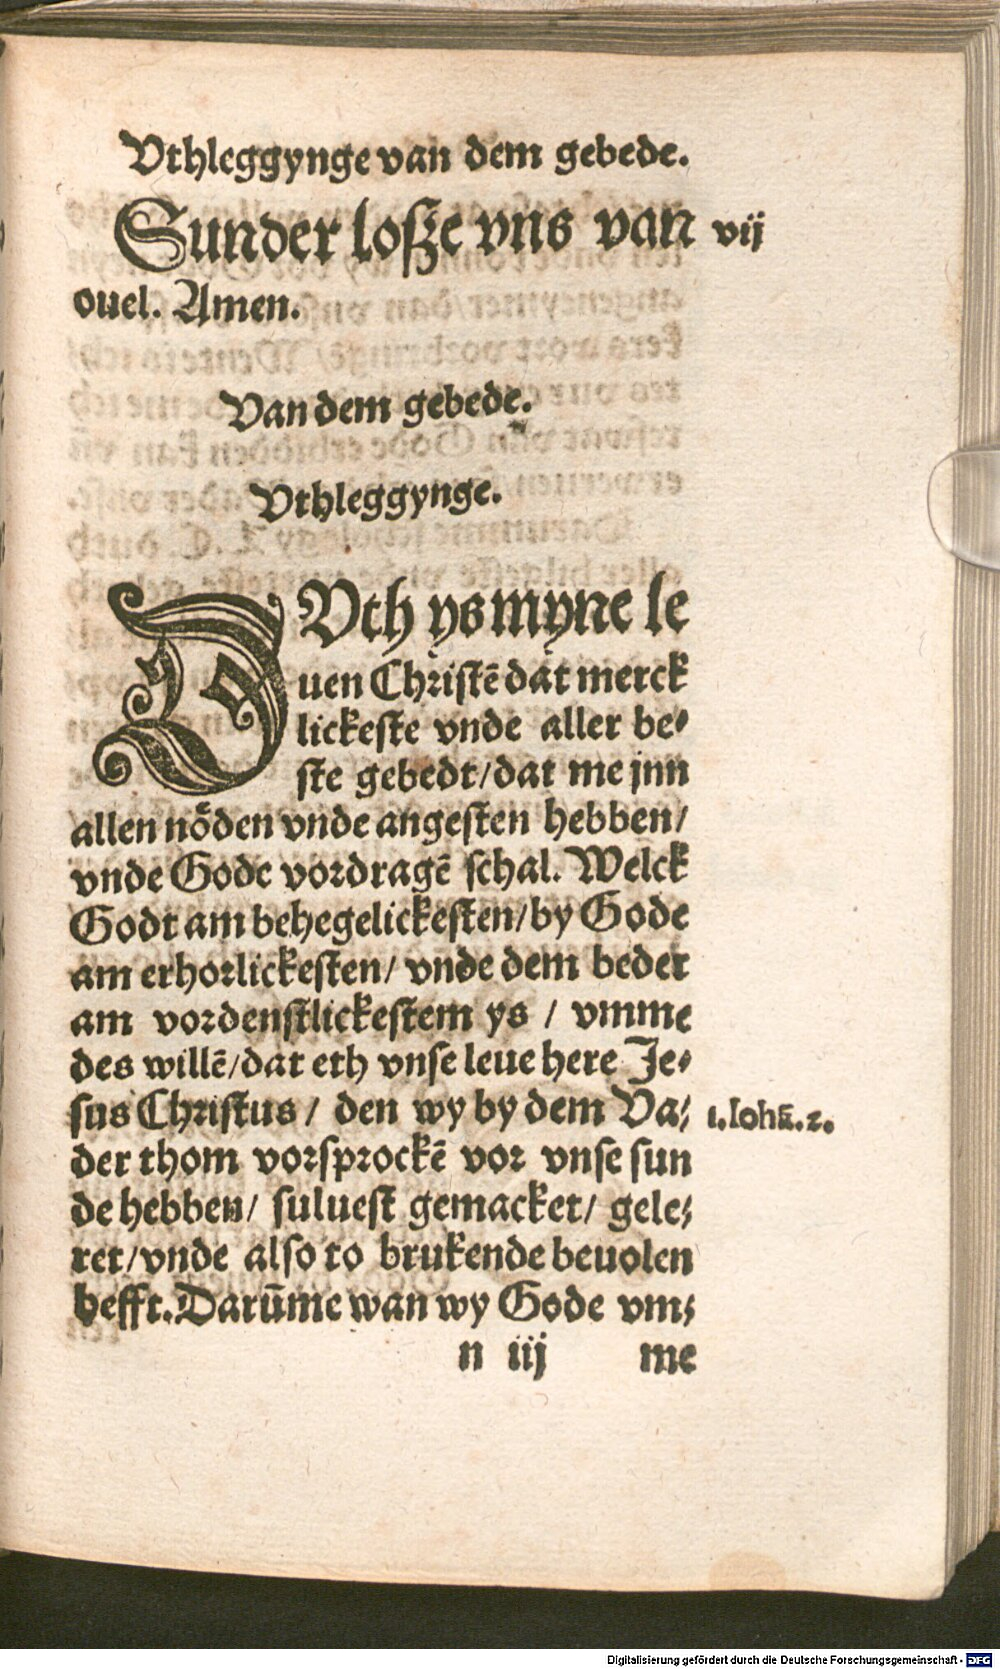 Vthleggynge van dem gebede.
Sunder losze vns van vij
ouel. Amen.
Van dem gebede.
Vthleggynge.
DVth ys myne le
uen Christē dat merck
lickeste vnde aller be⸗
ste gebedt/dat me jnn
allen nöden vnde angesten hebben/
vnde Gode vordragē schal. Welck
Godt am behegelickesten/by Gode
am erhorlickesten/ vnde dem beder
am vordenstlickestem ys / vmme
des willē/dat eth vnse leue here Je⸗
sus Christus / den wy by dem Va⸗ 1.Iohā.2.
der thom vorsprockē vor vnse sun
de hebben/ suluest gemacket/ gele⸗
ret/vnde also to brukende beuolen
hefft.Darūme wan wy Gode vm⸗
n iij me
Digitalisierung gefördert durch die Deutsche Forschungsgemeinschaft - DFG